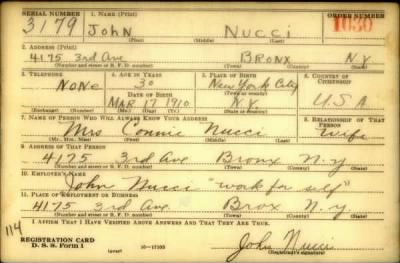 SERIAL NUMBER 1. NAME (Print) ORDER NUMBER
3179 JOHN NUCCI 1030
(First) (Middle) (Last)
2. ADDRESS (Print)
4175 3rd Ave BRONX N.Y
(Number and street or R. F. D. number) (Town) (County) (State)
3. TELEPHONE 4. AGE IN YEARS 5. PLACE OF BIRTH 6. COUNTRY OF CITIZENSHIP
NONE 30 New York City
(Town or county)
DATE OF BIRTH
MAR 17 1910 N.Y. U.S.A
(Exchange) (Number) (Mo.) (Day) (Yr.) (State or country)
7. NAME OF PERSON WHO WILL ALWAYS KNOW YOUR ADDRESS 8. RELATIONSHIP OF THAT PERSON
Mrs Connie Nucci Wife
(Mr., Mrs., Miss) (First) (Middle) (Last)
9. ADDRESS OF THAT PERSON
4175 3rd Ave Bronx N-y
(Number and street or R. F. D. number) (Town) (County) (State)
10. EMPLOYER'S NAME
John Nucci "work for self"
11. PLACE OF EMPLOYMENT OR BUSINESS
4175 3rd Ave Brox N-y
(Number and street or R. F. D. number) (Town) (County) (State)
I AFFIRM THAT I HAVE VERIFIED ABOVE ANSWERS AND THAT THEY ARE TRUE.
114
REGISTRATION CARD
D. S. S. Form 1 (over) 16-17105 John Nucci